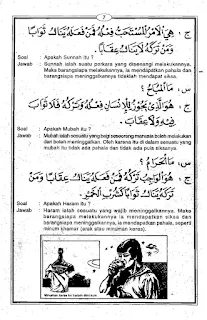 7
ج . هُوَ الْأَمْرُ الْمُسْتَحَبُّ فِعْلُهُ فَمَنْ فَعَلَهُ يَنَالُ ثَوَابًا
وَمَنْ تَرَكَهُ لَا يَنَالُ عِقَابًا
Soal : Apakah Sunnah itu ?
Jawab : Sunnah ialah suatu perkara yang disenangi melakukannya.
Maka barangsiapa melakukannya, ia mendapatkan pahala dan
barangsiapa meninggalkannya tidaklah mendapat siksa.
س . مَا الْمُبَاحُ ؟
ج . هُوَ الَّذِي يَجُوزُ لِلْإِنْسَانِ فِعْلُهُ وَتَرْكُهُ فَلَا ثَوَابَ
فِيهِ وَلَا عِقَابَ
Soal : Apakah Mubah itu ?
Jawab : Mubah ialah sesuatu yang bagi seseorang manusia boleh melakukan
dan boleh meninggalkan. Oleh karena itu di dalam sesuatu yang
mubah itu tidak ada pahala dan tidak ada pula siksanya.
س . مَا الْحَرَامُ ؟
ج . هُوَ الْوَاجِبُ تَرْكُهُ فَمَنْ فَعَلَهُ يَنَالُ عِقَابًا وَمَنْ
تَرَكَهُ يَنَالُ ثَوَابًا كَشُرْبِ الْخَمْرِ
Soal : Apakah Haram itu ?
Jawab : Haram ialah sesuatu yang wajib meninggalkannya. Maka
barangsiapa melakukannya ia mendapatkan siksa dan
barangsiapa meninggalkannya, ia mendapatkan pahala, seperti
minum khamar (arak atau minuman keras).
Minuman keras itu haram diminum